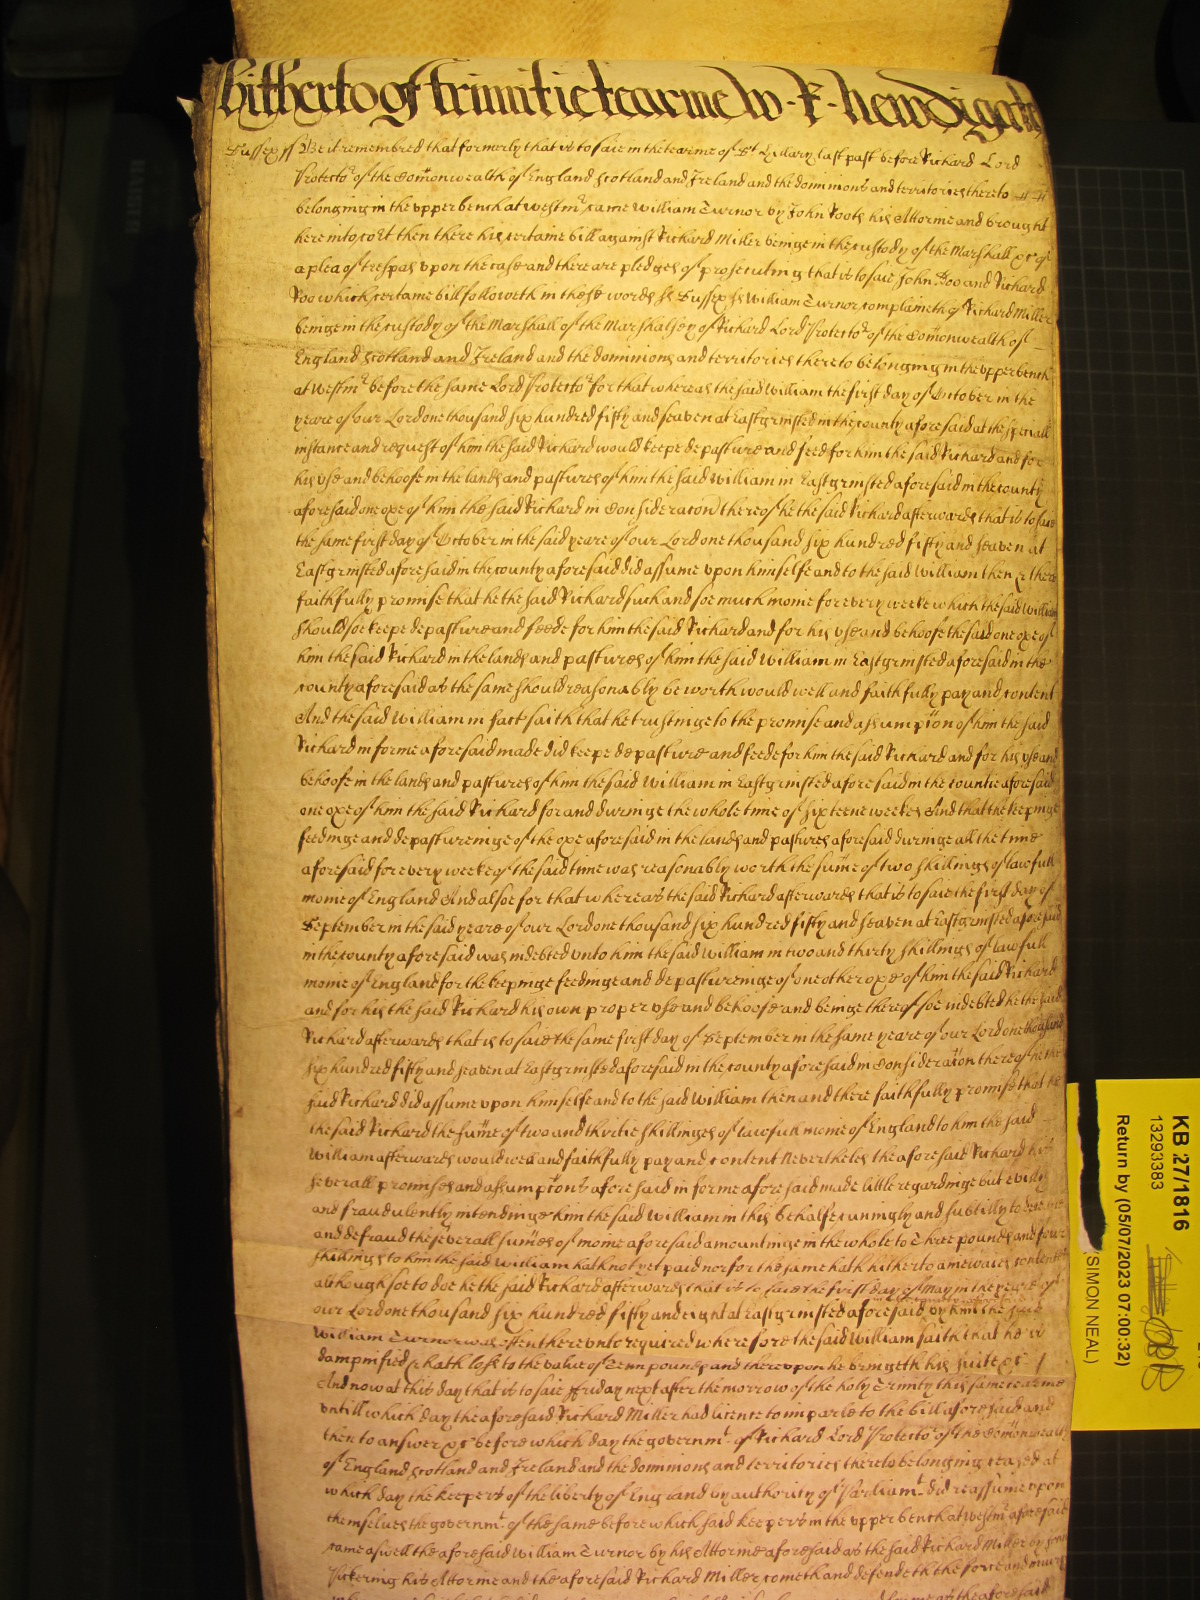 hitherto of trinitie tearme w - r - newdigate
Sussex ss Be it remembred that formerly that is to saie in the tearme of St Hillary last past before Richard Lord
Protector of the Comonwealth of England Scotland and Ireland and the dominions and territories thereto
belonging in the upper bench at Westmr came William Turnor by John Foote his Attornie and brought
here into Court then there his certaine bill against Richard Miller beinge in the custody of the Marshall &c of
a plea of trespas upon the case and there are pledges of prosecuting that is to saie John Doo and Richard
Roo which certaine bill followeth in these words ss Sussex ss William Turnor complaineth of Richard Miller
beinge in the custody of the Marshall of the Marshalsey of Richard Lord Protector of the Comonwealth of
England Scotland and Ireland and the dominions and territories thereto belonging in the upper bench
at Westmr before the same Lord Protector for that whereas the said William the first day of October in the
yeare of our Lord one thousand six hundred fifty and seaven at Eastgrinsted in the county aforesaid at the speciall
instance and request of him the said Richard would keepe depasture and feed for him the said Richard and for
his use and behoofe in the lands and pastures of him the said William in Eastgrinsted aforesaid in the county
aforesaid one oxe of him the said Richard in Consideracon thereof he the said Richard afterwards that is to saie
the same first day of October in the said yeare of our Lord one thousand six hundred fifty and seaven at
Eastgrinsted aforesaid in the county aforesaid did assume upon himselfe and to the said William then & there
faithfully promise that he the said Richard such and soe much monie for every weeke which the said William
should soe keepe depasture and feede for him the said Richard and for his use and behoofe the said one oxe of
him the said Richard in the lands and pastures of him the said William in Eastgrinsted aforesaid in the
county aforesaid as the same should reasonably be worth would well and faithfully pay and content
And the said William in fact saith that he trustinge to the promise and assumption of him the said
Richard in forme aforesaid made did keepe depasture and feede for him the said Richard and for his use and
behoofe in the lands and pastures of him the said William in Eastgrinsted aforesaid in the countie aforesaid
one oxe of him the said Richard for and duringe the whole time of sixteene weekes And that the keepinge
feedinge and depastureinge of the oxe aforesaid in the lands and pastures aforesaid duringe all the time
aforesaid for every weeke of the said time was reasonably worth the sume of two shillings of lawfull
monie of England And alsoe for that whereas the said Richard afterwards that is to saie the first day of
September in the said yeare of our Lord one thousand six hundred fifty and seaven at Eastgrinsted aforesaid
in the county aforesaid was indebted unto him the said William in two and thirty shillings of lawfull
monie of England for the keepinge feedinge and depastureinge of one other oxe of him the said Richard
and for his the said Richard his own proper use and behoofe and beinge thereof soe indebted he the said
Richard afterwards that is to saie the same first day of September in the same yeare of our Lord one thousand
six hundred fifty and seaven at Eastgrinsted aforesaid in the county aforesaid in Consideracon thereof he the
said Richard did assume upon himselfe and to the said William then and there faithfully promise that he
the said Richard the sume of two and thirtie shillinges of lawfull monie of England to him the said
William afterwards would well and faithfully pay and content Nevertheles the aforesaid Richard his
severall promises and assumptons aforesaid in forme aforesaid made little regardinge but
and fraudulently intendinge him the said William in this behalfe cuningly and subtilly to deceive
and defraud the severall sumes of monie aforesaid amountinge in the whole to Three pounds and foure
shillings to him the said William hath not yet paid nor for the same hath hitherto anewaies contented
although soe to doe he the said Richard afterwards that is to saie the first day of May in the yeare of
our Lord one thousand six hundred fifty and eight at Eastgrinsted aforesaid by him the said
William Turnor was often thereunto required wherefore the said William saith that he is
dampnified & hath losse to the value of Tenn pounds and thereupon he bringeth his suite &c
And now at this day that is to saie ffriday next after the morrow of the holy Trinity this same tearme
untill which day the aforesaid Richard Miller had licence to imparle to the bill aforesaid and
then to answer &c before which day the governmt of Richard Lord Protector of the Comonwealth
of England Scotland and Ireland and the dominions and territories thereto belonging ceased at
which day the keepers of the liberty of England by authority of Parliamt did reassume upon
themselves the governmt of the same before which said keepers in the upper bench at Westmr aforesaid
came aswell the aforesaid William Turnor by his Attornie aforesaid as the said Richard Miller by
Pickering his Attornie and the aforesaid Richard Miller cometh and defendeth the force and iniurie
KB 27/1816
13293383
Return by (05/07/2023 07:00:32)
(SIMON NEAL)